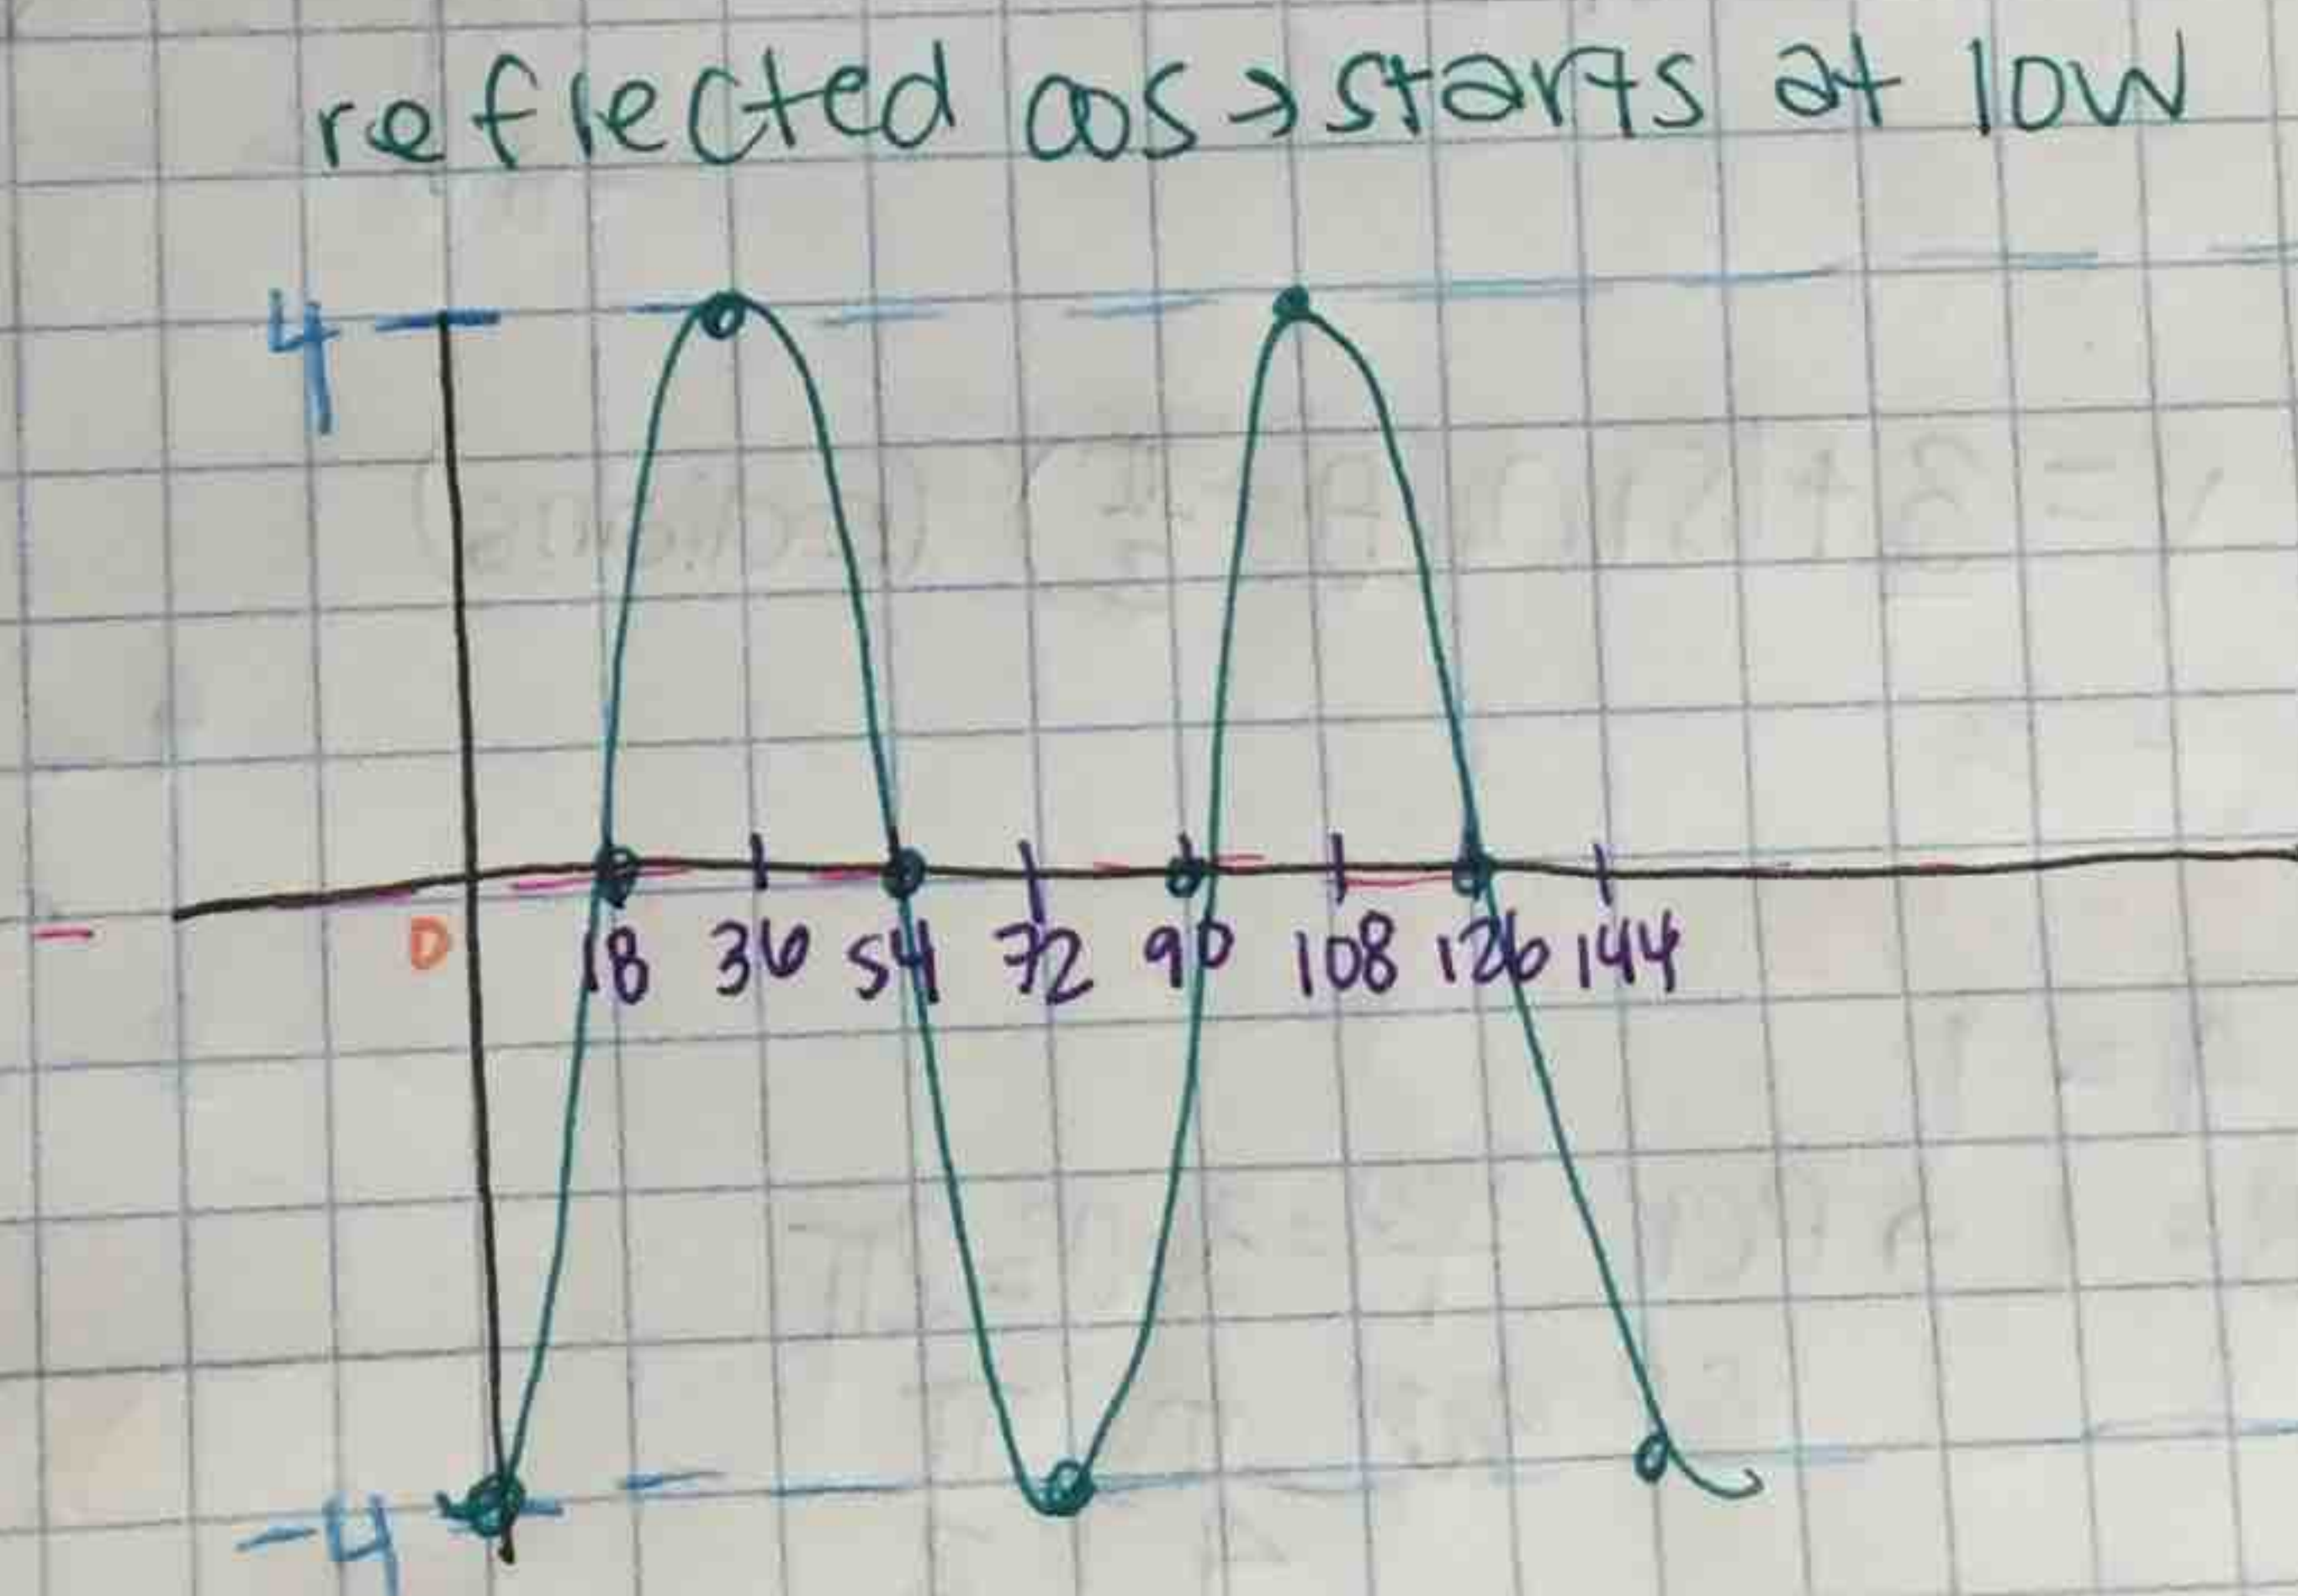 reflected cos → starts at low
4
0 18 36 54 72 90 108 126 144
-4